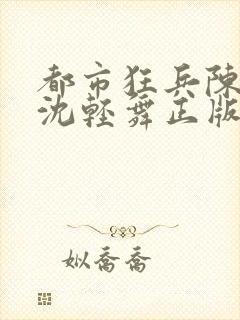 都市狂兵陳
沈輕舞正版
姒喬喬